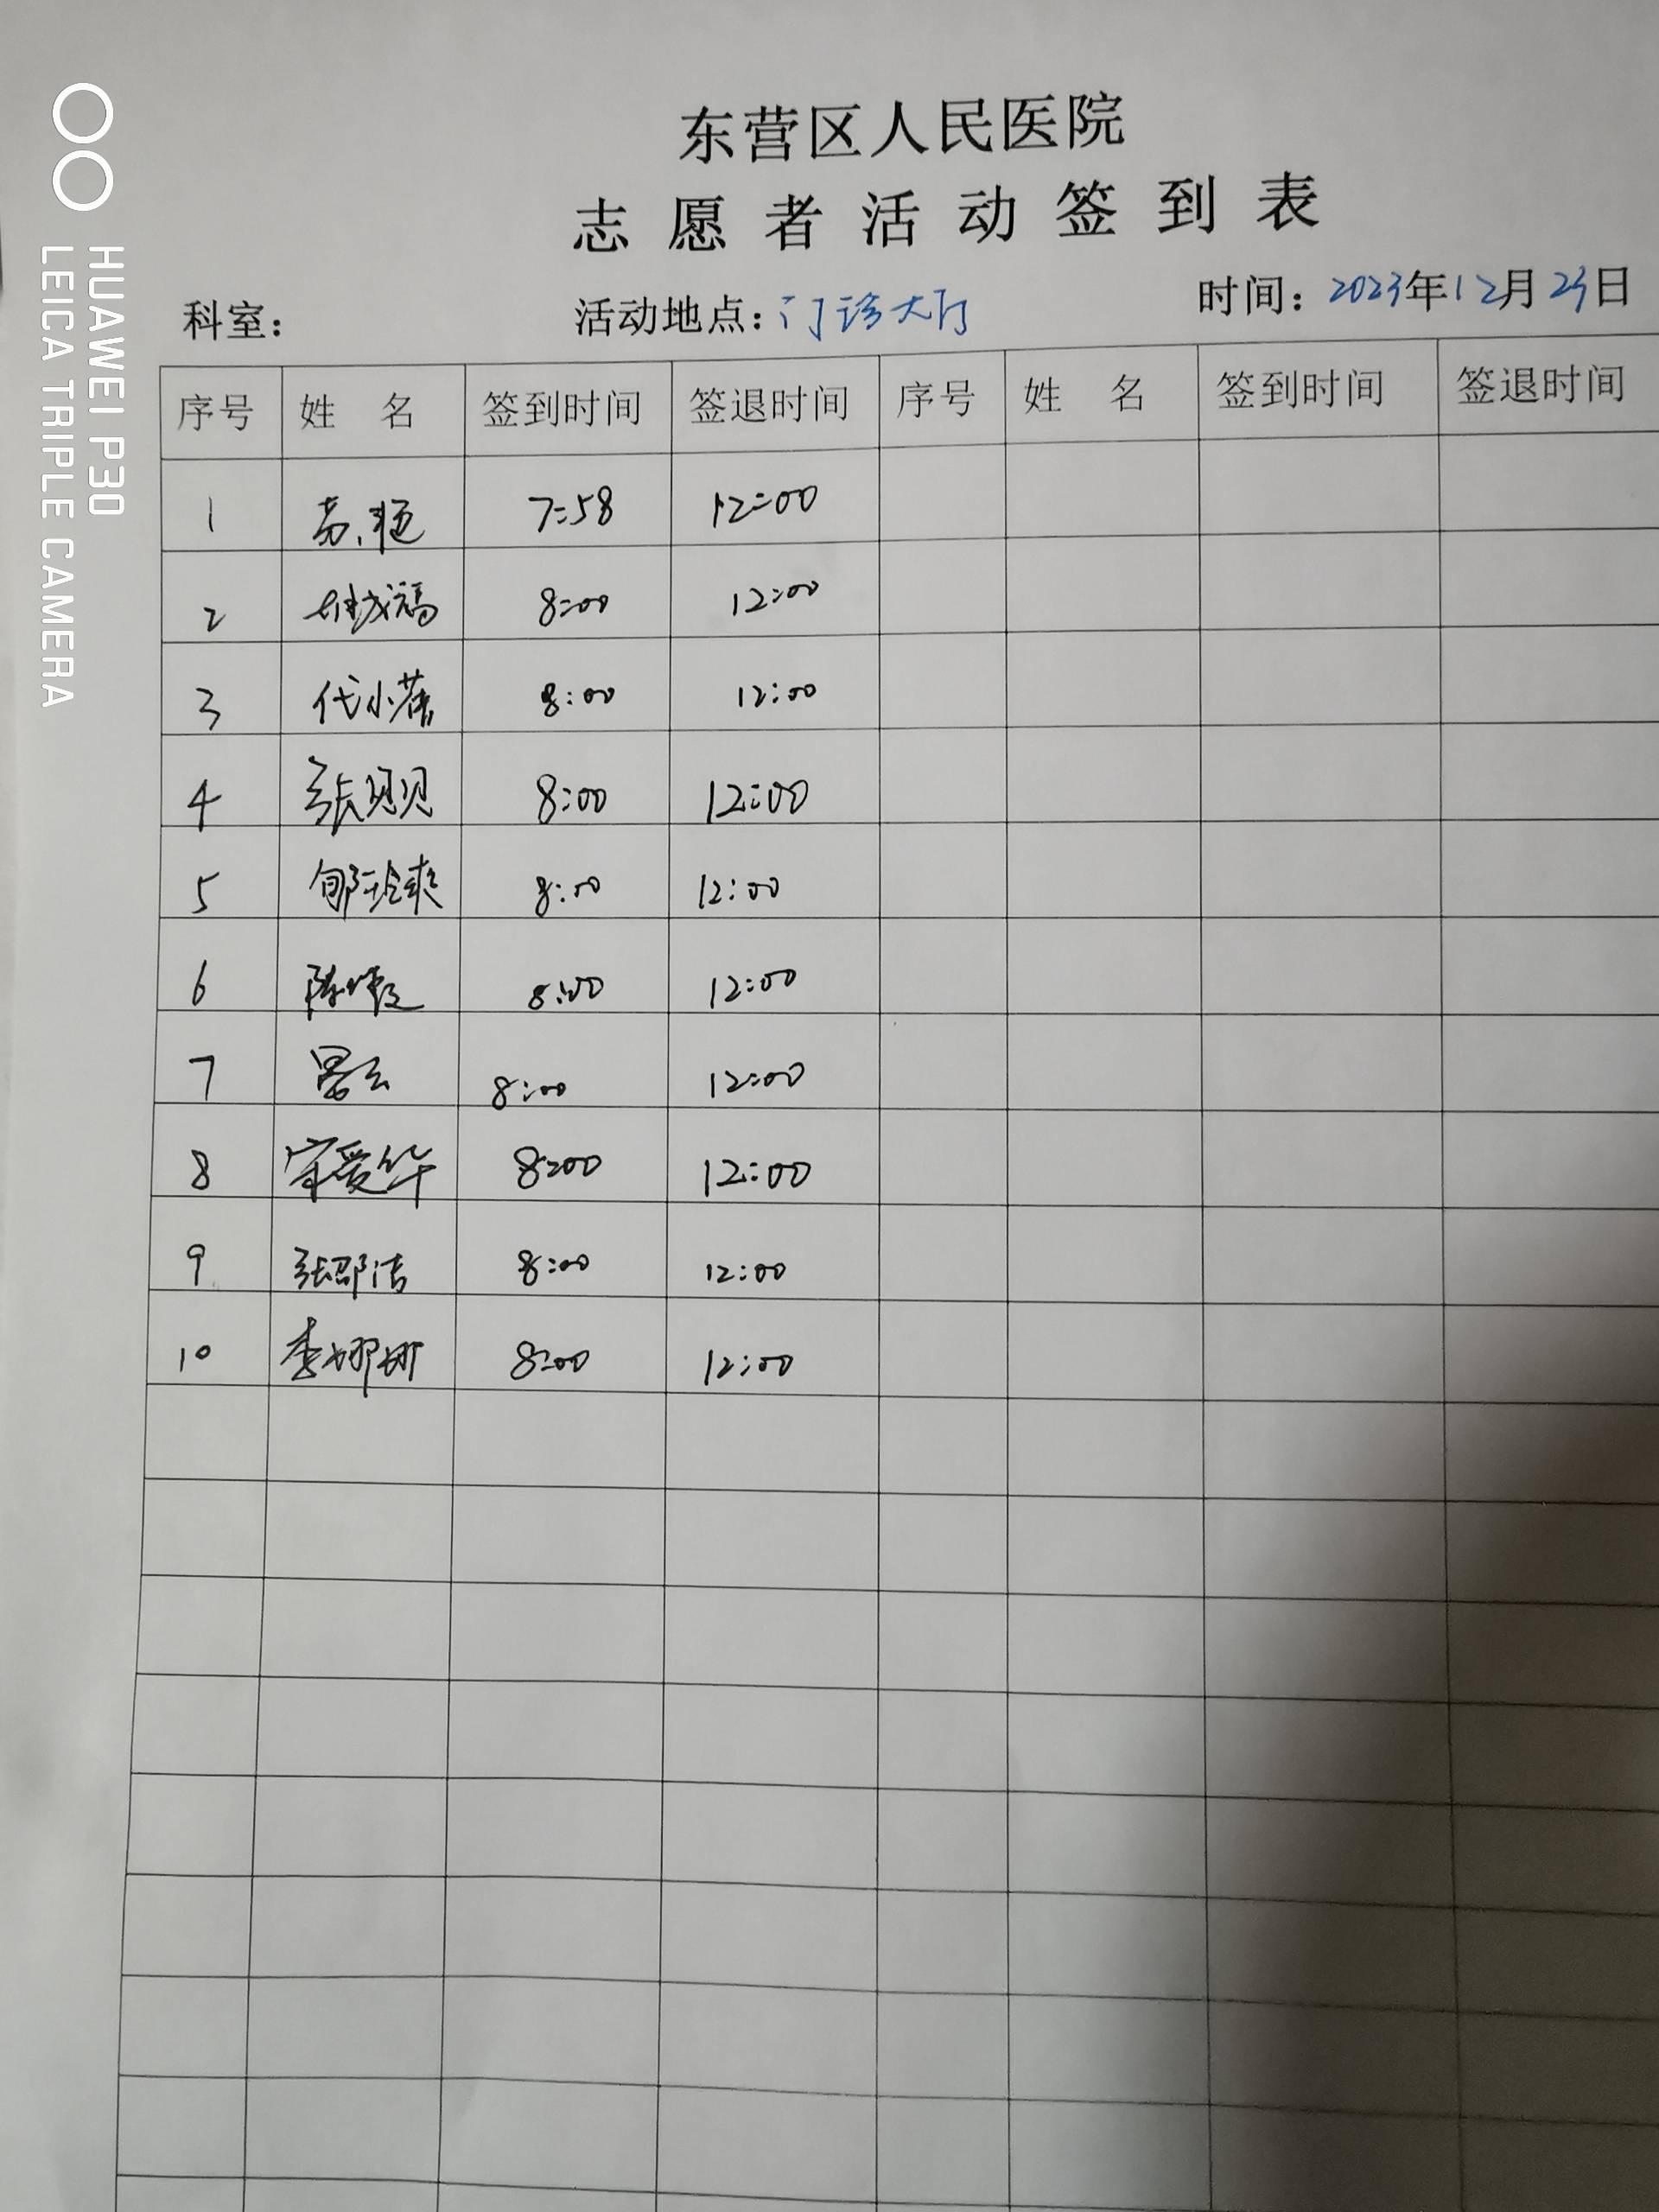 东营区人民医院
志愿者活动签到表
科室： 活动地点：门诊大厅 时间：2023年12月23日
序号 姓 名 签到时间 签退时间 序号 姓 名 签到时间 签退时间
1 7:58 12:00
2 8:00 12:00
3 代小蓓 8:00 12:00
4 张贝贝 8:00 12:00
5 8:00 12:00
6 8:00 12:00
7 8:00 12:00
8 宋爱华 8:00 12:00
9 张邵洁 8:00 12:00
10 李娜娜 8:00 12:00
HUAWEI P30
LEICA TRIPLE CAMERA